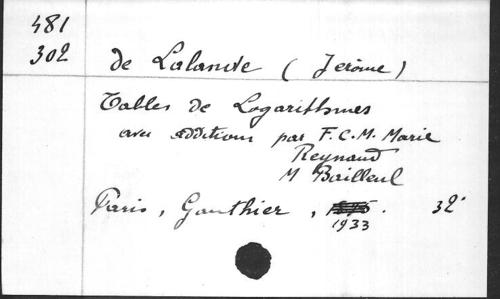 481
302
de Lalande (Jerôme)
Tables de Logarithmes
avec additions par F.C.M. Marie
Reynaud
M Bailleul
Paris, Gauthier, . 32°
1933